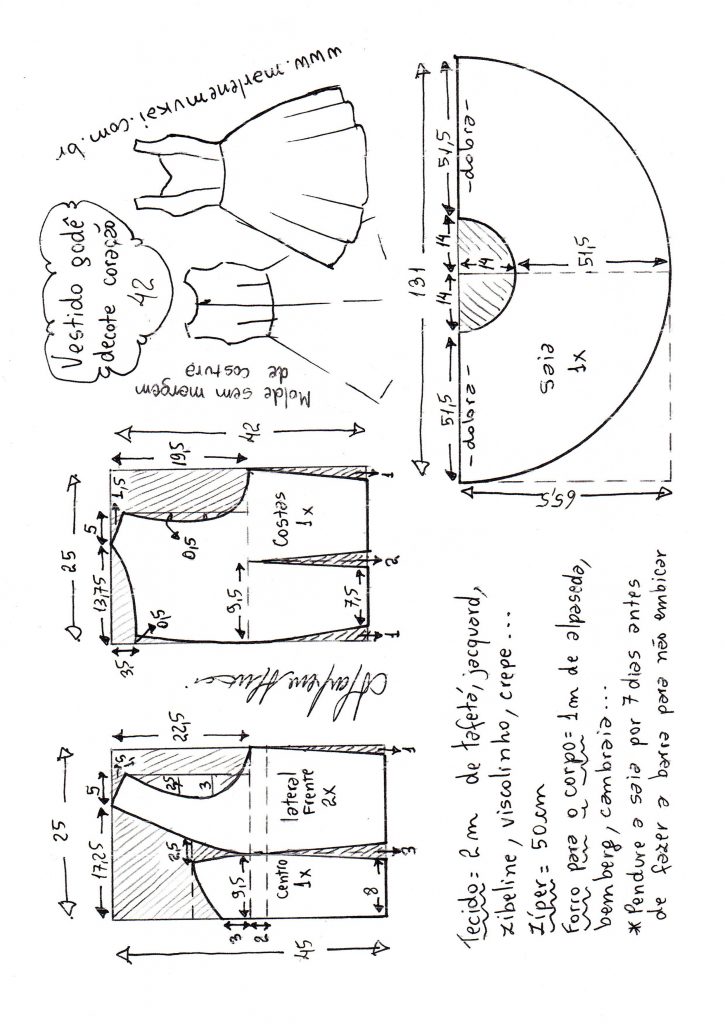 www.marlenemukai.com.br
Vestido godê
decote coração
42
Molde sem margem
de costura
25
17,25
5
1,5
22,5
2,5
2,5
3
9,5
3
2
45
Centro
1x
lateral
Frente
2x
8
3
1
25
13,75
5
1,5
3,5
0,5
0,5
19,5
42
Costas
1x
9,5
7,5
1
2
1
131
51,5
14
14
51,5
-dobra-
-dobra-
14
51,5
65,5
Saia
1x
Tecido = 2 m de tafetá, jacquard,
zibeline, viscolinho, crepe...
Zíper = 50cm
Forro para o corpo = 1m de alpaseda,
bemberg, cambraia...
*Pendure a saia por 7 dias antes
de fazer a barra para não embicar